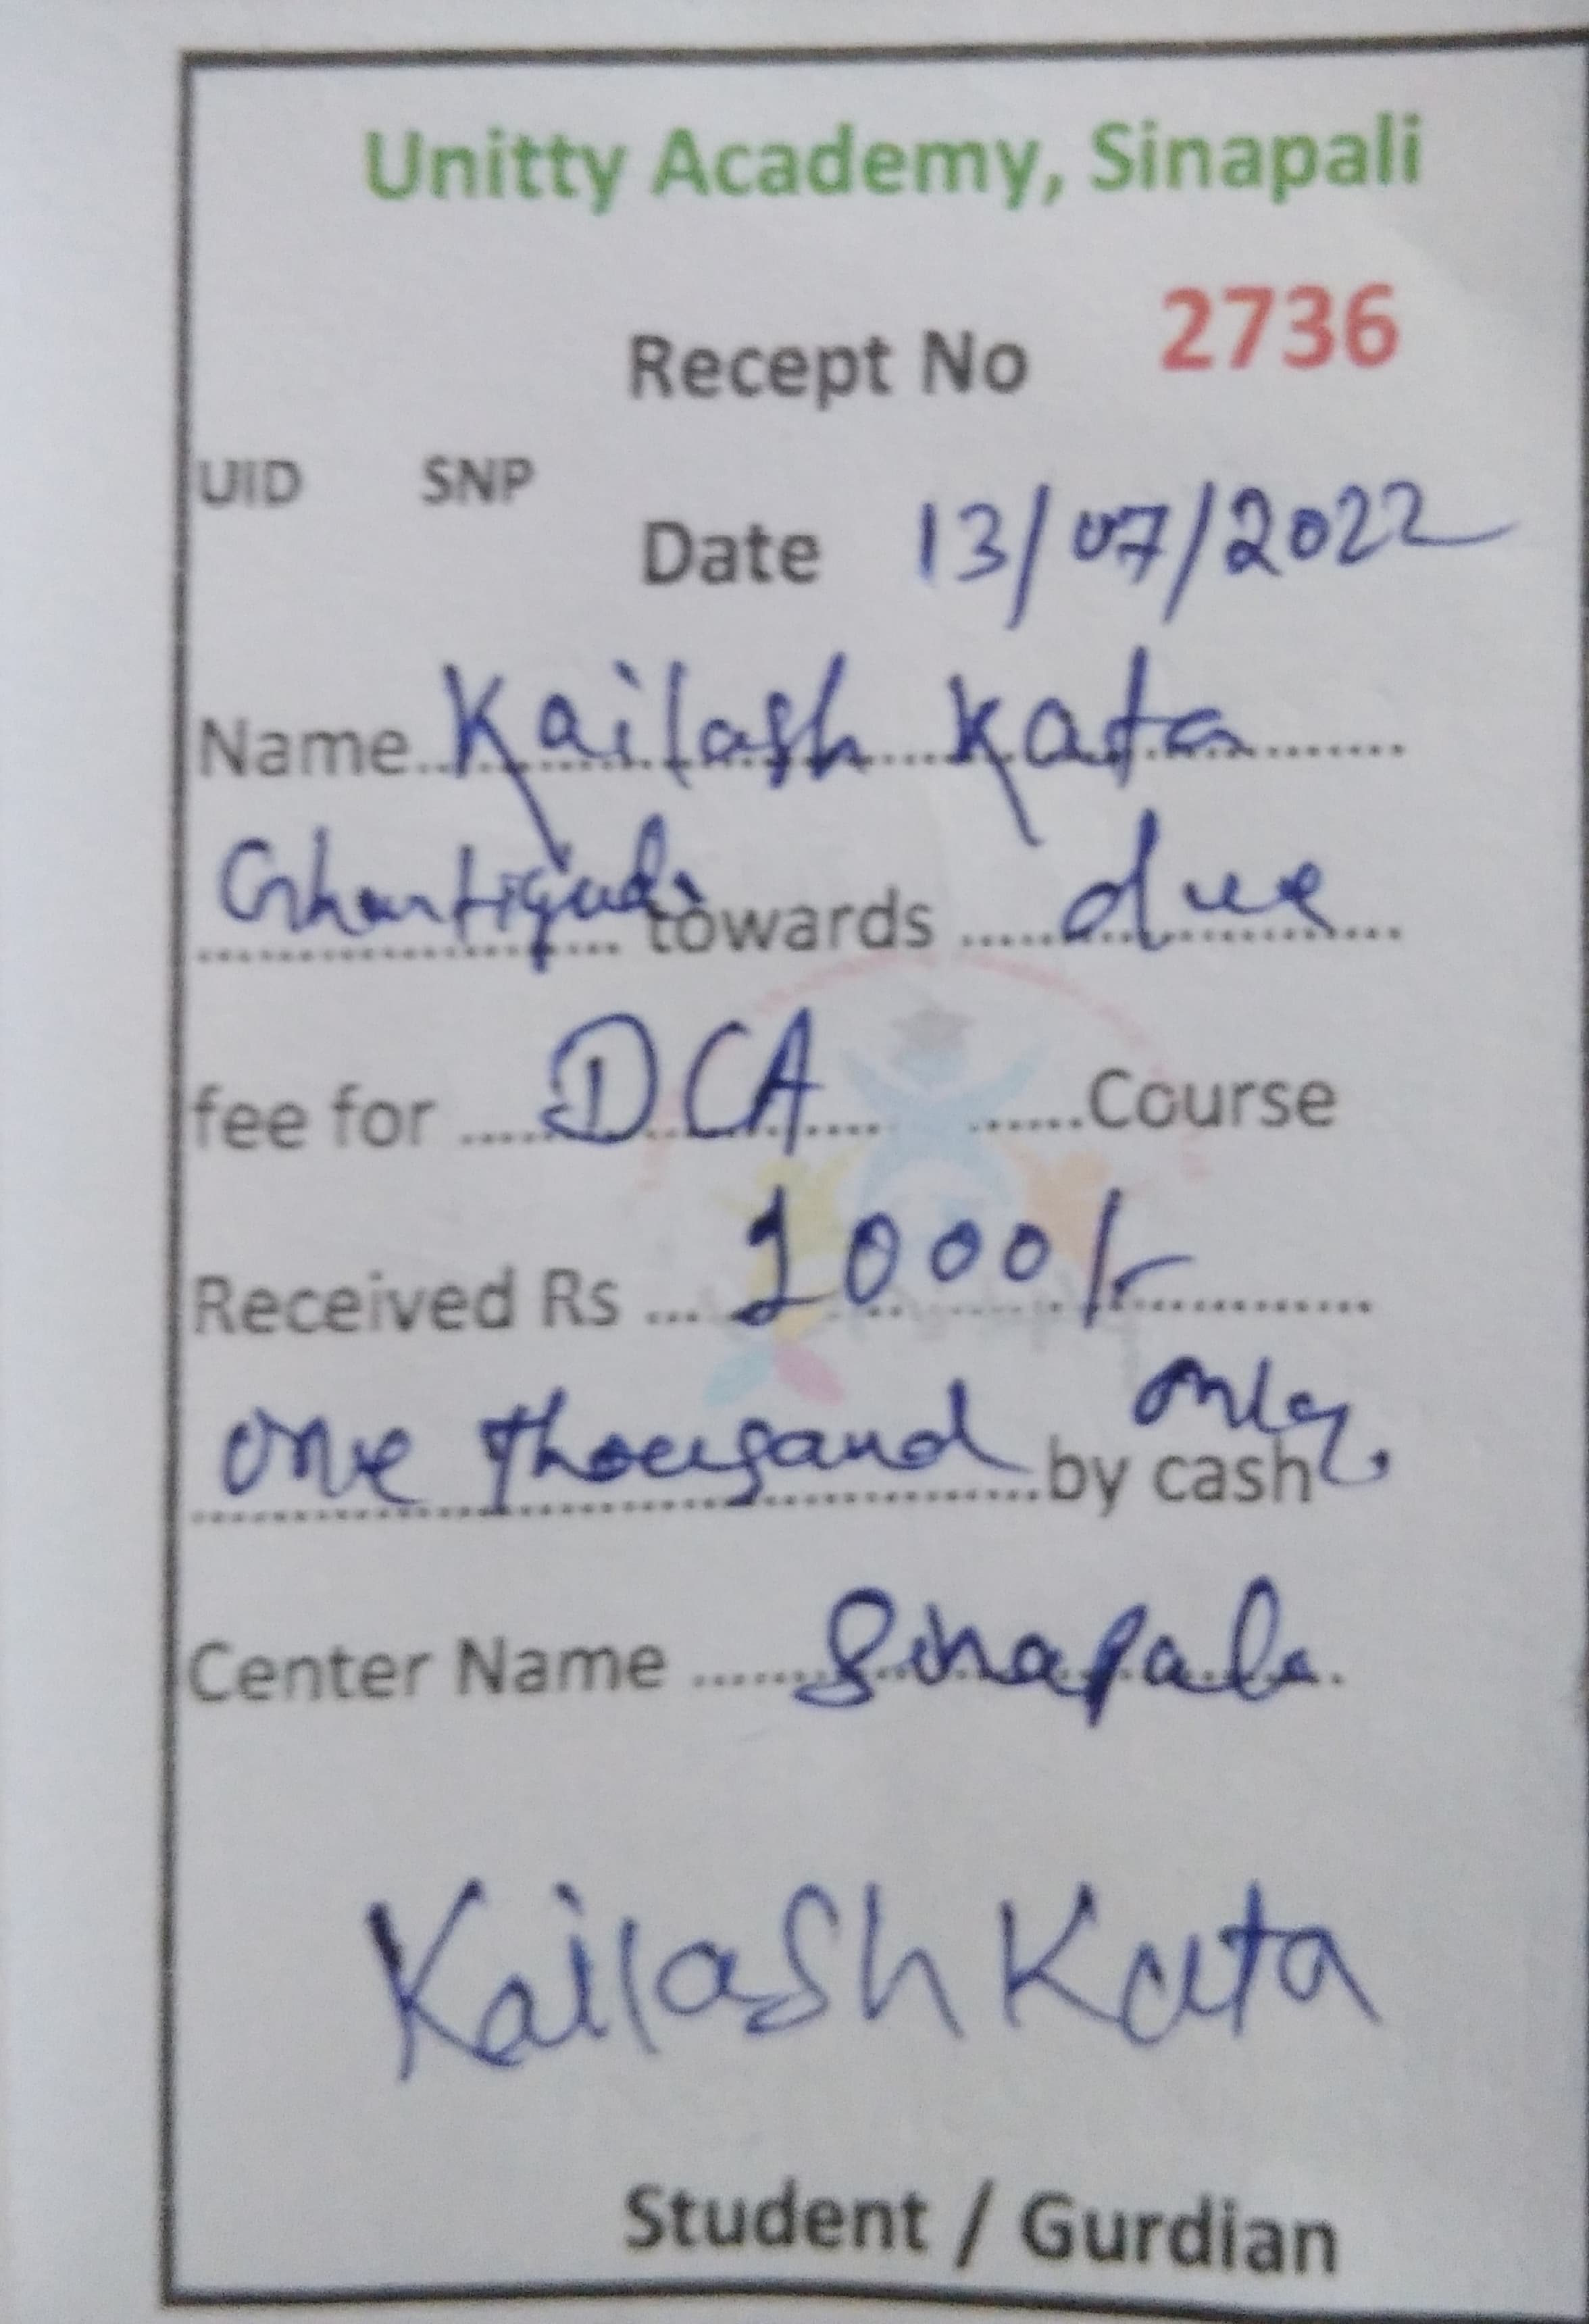 Unitty Academy, Sinapali
Recept No 2736
UID SNP
Date 13/07/2022
Name Kailash Kata
towards due
fee for DCA Course
Received Rs 1000/-
one thousand by cash only
Center Name Sinapali
Kailash Kata
Student / Gurdian